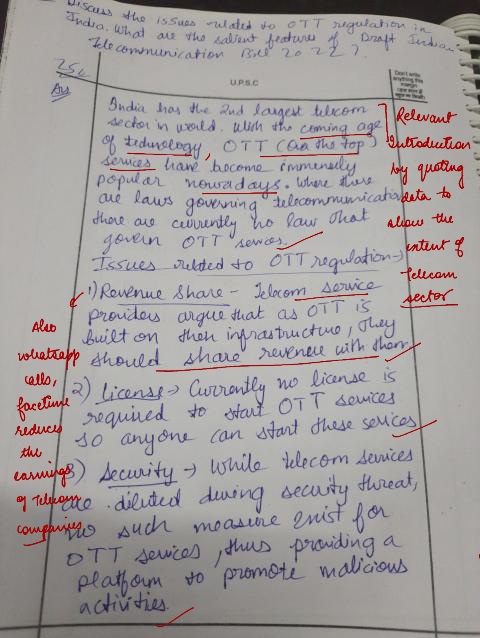 Discuss the issues related to OTT regulation in
India. What are the salient features of Draft Indian
Telecommunication Bill 2022?
U.P.S.C
Don't write
anything this
margin
Ans
India has the 2nd largest telecom
sector in world. With the coming age
of technology, OTT (Over the top)
services have become immensely
popular nowadays. Where there
are laws governing telecommunication
there are currently no law that
govern OTT services.
Relevant
Introduction
by quoting
data to
show the
intent of
Telecom
sector
Issues related to OTT regulation→
1) Revenue Share - Telecom service
providers argue that as OTT is
built on their infrastructure, they
should share revenue with them
Also
whatsapp
calls,
facetime
reduces
the
earnings
of Telecom
companies
2) License → Currently no license is
required to start OTT services
so anyone can start these services
3) Security → While telecom services
are diluted during security threat,
no such measure exist for
OTT services, thus providing a
platform to promote malicious
activities.